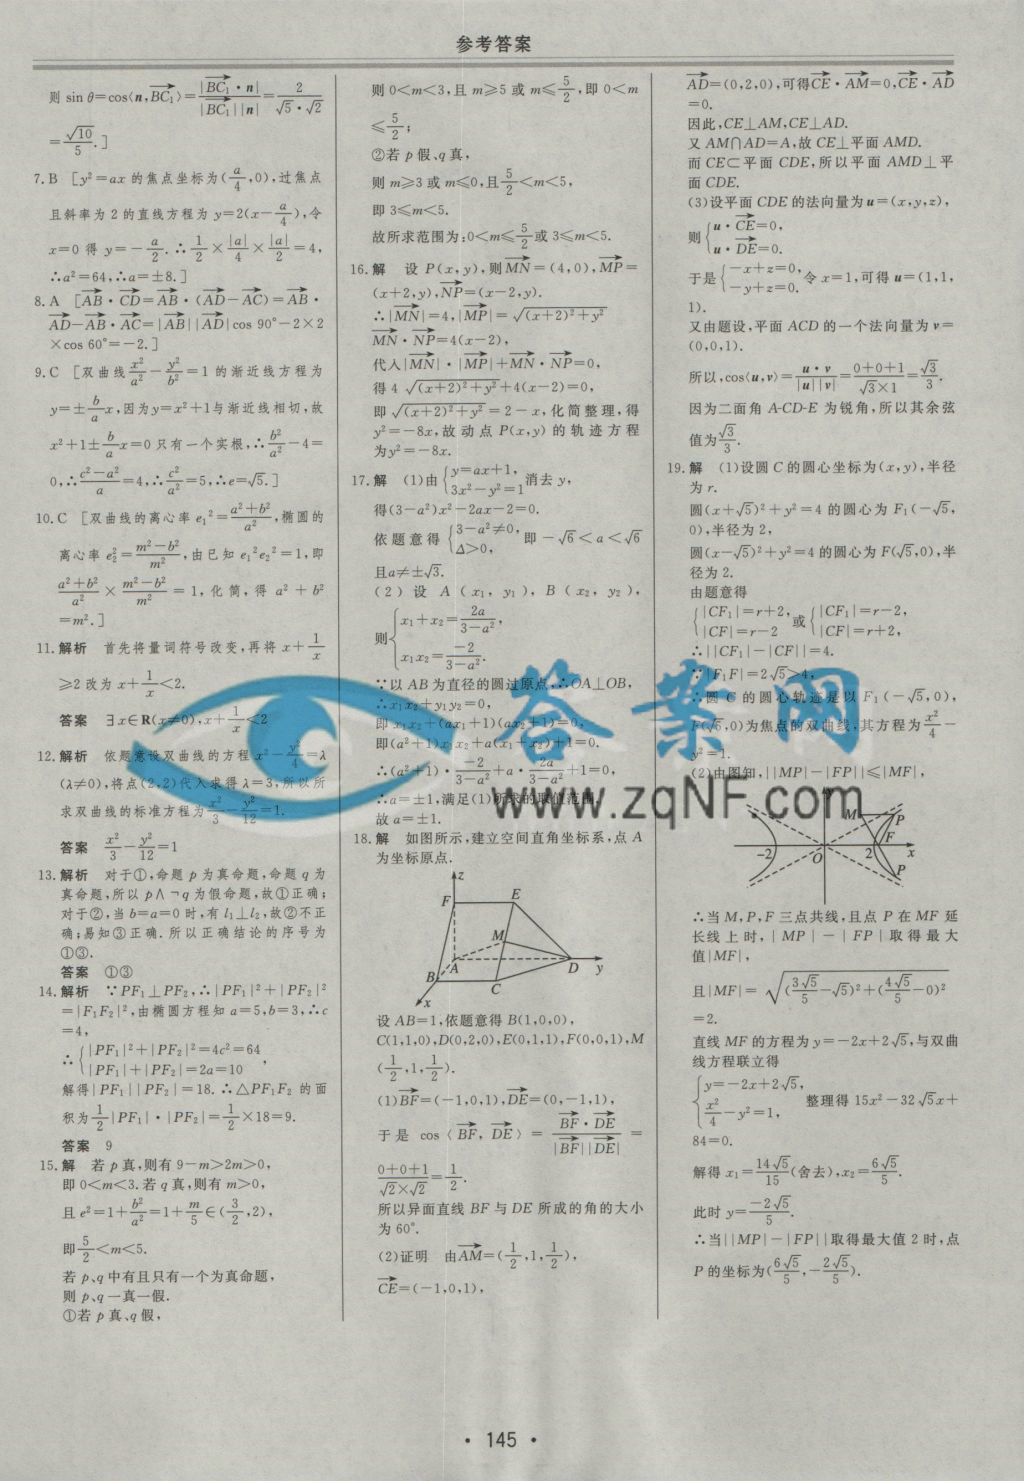 参考答案
则 sin θ=cos⟨n,BC₁⟩=|BC₁·n|/|BC₁||n|=2/(√5·√2)
=√10/5.]
7.B [y²=ax 的焦点坐标为(a/4,0),过焦点
且斜率为 2 的直线方程为 y=2(x-a/4),令
x=0 得 y=-a/2.∴1/2×|a|/4×|a|/2=4,
∴a²=64,∴a=±8.]
8.A [AB·CD=AB·(AD-AC)=AB·
AD-AB·AC=|AB||AD|cos 90°-2×2
×cos 60°=-2.]
9.C [双曲线x²/a²-y²/b²=1 的渐近线方程为
y=±b/a x,因为y=x²+1与渐近线相切,故
x²+1±b/a x=0 只有一个实根,∴b²/a²-4=
0,∴(c²-a²)/a=4,∴c²/a²=5,∴e=√5.]
10.C [双曲线的离心率 e₁²=(a²+b²)/a²,椭圆的
离心率 e₂²=(m²-b²)/m²,由已知 e₁²e₂²=1,即
(a²+b²)/a²×(m²-b²)/m²=1,化简,得 a²+b²
=m².]
11.解析 首先将量词符号改变,再将 x+1/x
≥2 改为 x+1/x<2.
答案 ∃x∈R(x≠0),x+1/x<2
12.解析 依题意设双曲线的方程 x²-y²/4=λ
(λ≠0),将点(2,2)代入求得 λ=3,所以所
求双曲线的标准方程为x²/3-y²/12=1.
答案 x²/3-y²/12=1
13.解析 对于①,命题 p 为真命题,命题 q 为
真命题,所以 p∧¬q 为假命题,故①正确;
对于②,当 b=a=0 时,有 l₁⊥l₂,故②不正
确;易知③正确.所以正确结论的序号为
①③.
答案 ①③
14.解析 ∵PF₁⊥PF₂,∴|PF₁|²+|PF₂|²
=|F₁F₂|²,由椭圆方程知 a=5,b=3,∴c
=4,
∴{|PF₁|²+|PF₂|²=4c²=64
|PF₁|+|PF₂|=2a=10,
解得|PF₁||PF₂|=18.∴△PF₁F₂ 的面
积为1/2|PF₁|·|PF₂|=1/2×18=9.
答案 9
15.解 若 p 真,则有 9-m>2m>0,
即 0<m<3.若 q 真,则有 m>0,
且 e²=1+b²/a²=1+m/5∈(3/2,2),
即5/2<m<5.
若 p、q 中有且只有一个为真命题,
则 p、q 一真一假.
①若 p 真、q 假,
则 0<m<3,且 m≥5 或 m≤5/2,即 0<m
≤5/2;
②若 p 假、q 真,
则 m≥3 或 m≤0,且5/2<m<5,
即 3≤m<5.
故所求范围为:0<m≤5/2或 3≤m<5.
16.解 设 P(x,y),则MN=(4,0),MP=
(x+2,y),NP=(x-2,y).
∴|MN|=4,|MP|=√((x+2)²+y²)
MN·NP=4(x-2),
代入|MN|·|MP|+MN·NP=0,
得 4√((x+2)²+y²)+4(x-2)=0,
即√((x+2)²+y²)=2-x,化简整理,得
y²=-8x,故动点 P(x,y)的轨迹方程
为y²=-8x.
17.解 (1)由{y=ax+1,
3x²-y²=1消去 y,
得(3-a²)x²-2ax-2=0.
依题意得{3-a²≠0,
Δ>0,即-√6<a<√6
且a≠±√3.
(2)设 A(x₁,y₁),B(x₂,y₂),
则{x₁+x₂=2a/(3-a²),
x₁x₂=-2/(3-a²).
∵以 AB 为直径的圆过原点,∴OA⊥OB,
∴x₁x₂+y₁y₂=0,
即 x₁x₂+(ax₁+1)(ax₂+1)=0,
即(a²+1)x₁x₂+a(x₁+x₂)+1=0.
∴(a²+1)·-2/(3-a²)+a·2a/(3-a²)+1=0,
∴a=±1,满足(1)所求的取值范围.
故 a=±1.
18.解 如图所示,建立空间直角坐标系,点 A
为坐标原点.
z
F E
M
B A D y
x C
设 AB=1,依题意得 B(1,0,0),
C(1,1,0),D(0,2,0),E(0,1,1),F(0,0,1),M
(1/2,1,1/2).
(1)BF=(-1,0,1),DE=(0,-1,1),
于是 cos⟨BF,DE⟩=BF·DE/|BF||DE|=
(0+0+1)/(√2×√2)=1/2.
所以异面直线 BF 与 DE 所成的角的大小
为 60°.
(2)证明 由AM=(1/2,1,1/2),
CE=(-1,0,1),
AD=(0,2,0),可得CE·AM=0,CE·AD
=0.
因此,CE⊥AM,CE⊥AD.
又 AM∩AD=A,故 CE⊥平面 AMD.
而 CE⊂平面 CDE,所以平面 AMD⊥平
面 CDE.
(3)设平面 CDE 的法向量为 u=(x,y,z),
则{u·CE=0,
u·DE=0.
于是{-x+z=0,
-y+z=0.令 x=1,可得 u=(1,1,
1).
又由题设,平面 ACD 的一个法向量为 v=
(0,0,1).
所以,cos⟨u,v⟩=u·v/|u||v|=(0+0+1)/(√3×1)=√3/3.
因为二面角 A-CD-E 为锐角,所以其余弦
值为√3/3.
19.解 (1)设圆 C 的圆心坐标为(x,y),半径
为 r.
圆(x+√5)²+y²=4 的圆心为 F₁(-√5,
0),半径为 2,
圆(x-√5)²+y²=4 的圆心为 F(√5,0),半
径为 2.
由题意得
{|CF₁|=r+2,
|CF|=r-2 或{|CF₁|=r-2,
|CF|=r+2,
∴||CF₁|-|CF||=4.
∵|F₁F|=2√5>4,
∴圆 C 的圆心轨迹是以 F₁(-√5,0),
F(√5,0)为焦点的双曲线,其方程为x²/4-
y²=1.
(2)由图知,||MP|-|FP||≤|MF|,
y
M P
-2 O 2 F x
P
∴当 M,P,F 三点共线,且点 P 在 MF 延
长线上时,|MP|-|FP|取得最大
值|MF|,
且|MF|=√((3√5/5-√5)²+(4√5/5-0)²)
=2.
直线 MF 的方程为 y=-2x+2√5,与双曲
线方程联立得
{y=-2x+2√5,
x²/4-y²=1, 整理得 15x²-32√5x+
84=0.
解得 x₁=14√5/15(舍去),x₂=6√5/5.
此时 y=-2√5/5.
∴当||MP|-|FP||取得最大值 2 时,点
P 的坐标为(6√5/5,-2√5/5).
答案网
www.zqNF.com
·145·